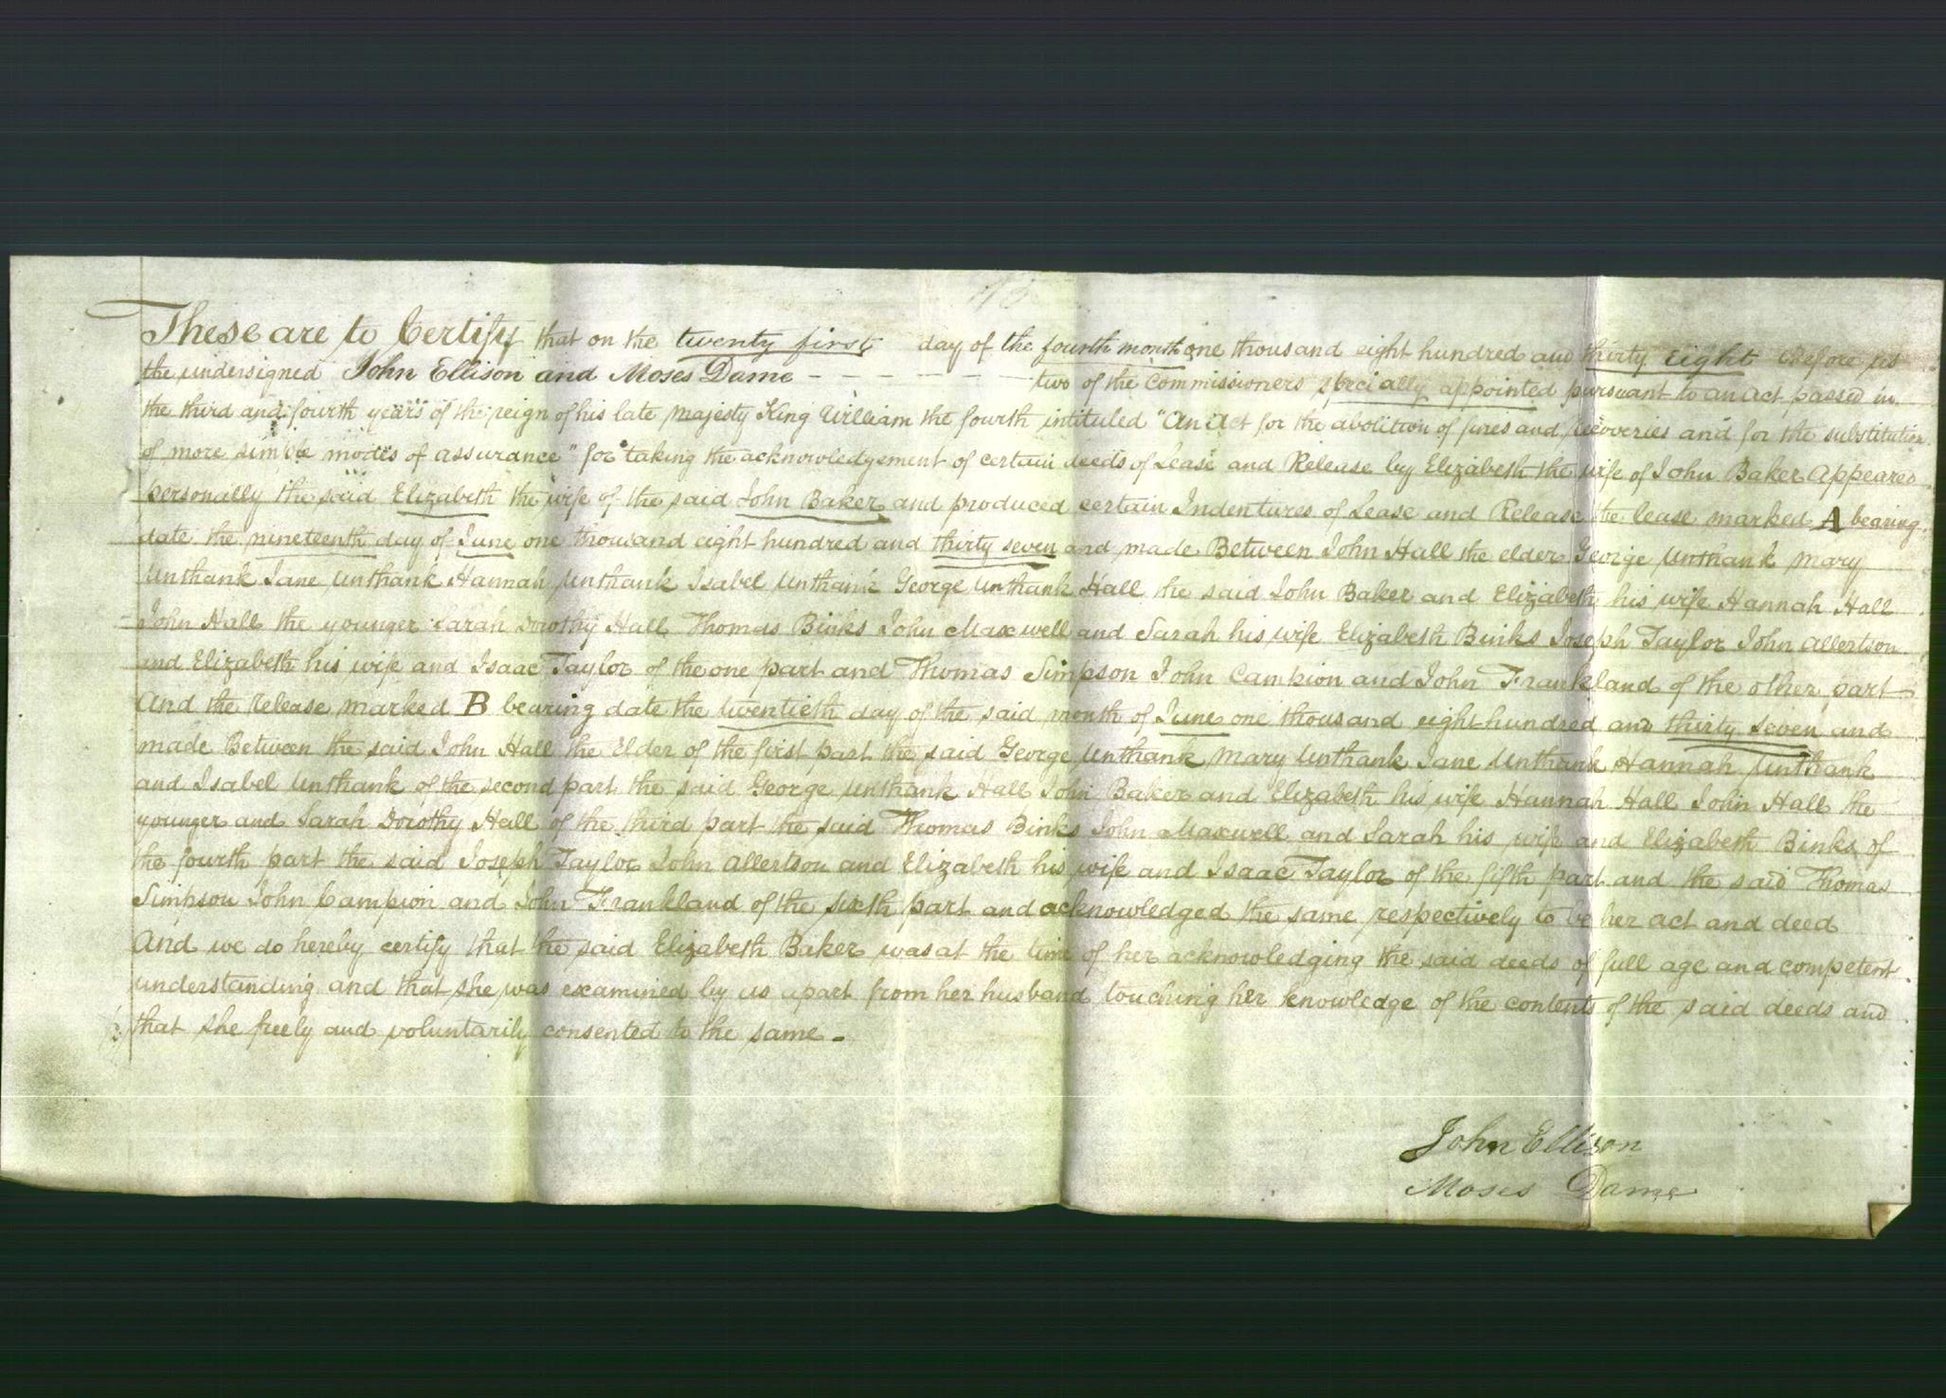 These are to Certify that on the twenty first day of the fourth month one thousand eight hundred and thirty eight Before us
the undersigned John Ellison and Moses Dame - - - - - - two of the Commissioners specially appointed pursuant to an act passed in
the third and fourth years of the reign of his late majesty King William the fourth intituled "An Act for the abolition of fines and recoveries and for the substitution
of more simple modes of assurance" for taking the acknowledgement of certain deeds of Lease and Release by Elizabeth the wife of John Baker Appeared
personally the said Elizabeth the wife of the said John Baker and produced certain Indentures of Lease and Release the lease marked A bearing
date the nineteenth day of June one thousand eight hundred and thirty seven and made Between John Hall the elder George Unthank Mary
Unthank Jane Unthank Hannah Unthank Isabel Unthank George Unthank Hall the said John Baker and Elizabeth his wife Hannah Hall
John Hall the younger Sarah Dorothy Hall Thomas Binks John Maxwell and Sarah his wife Elizabeth Binks Joseph Taylor John Allertson
and Elizabeth his wife and Isaac Taylor of the one part and Thomas Simpson John Campion and John Frankland of the other part
And the Release marked B bearing date the twentieth day of the said month of June one thousand eight hundred and thirty seven and
made Between the said John Hall the Elder of the first part the said George Unthank Mary Unthank Jane Unthank Hannah Unthank
and Isabel Unthank of the second part the said George Unthank Hall John Baker and Elizabeth his wife Hannah Hall John Hall the
younger and Sarah Dorothy Hall of the third part the said Thomas Binks John Maxwell and Sarah his wife and Elizabeth Binks of
the fourth part the said Joseph Taylor John Allertson and Elizabeth his wife and Isaac Taylor of the fifth part and the said Thomas
Simpson John Campion and John Frankland of the sixth part and acknowledged the same respectively to be her act and deed
And we do hereby certify that the said Elizabeth Baker was at the time of her acknowledging the said deeds of full age and competent
understanding and that she was examined by us apart from her husband touching her knowledge of the contents of the said deeds and
that she freely and voluntarily consented to the same -
John Ellison
Moses Dame